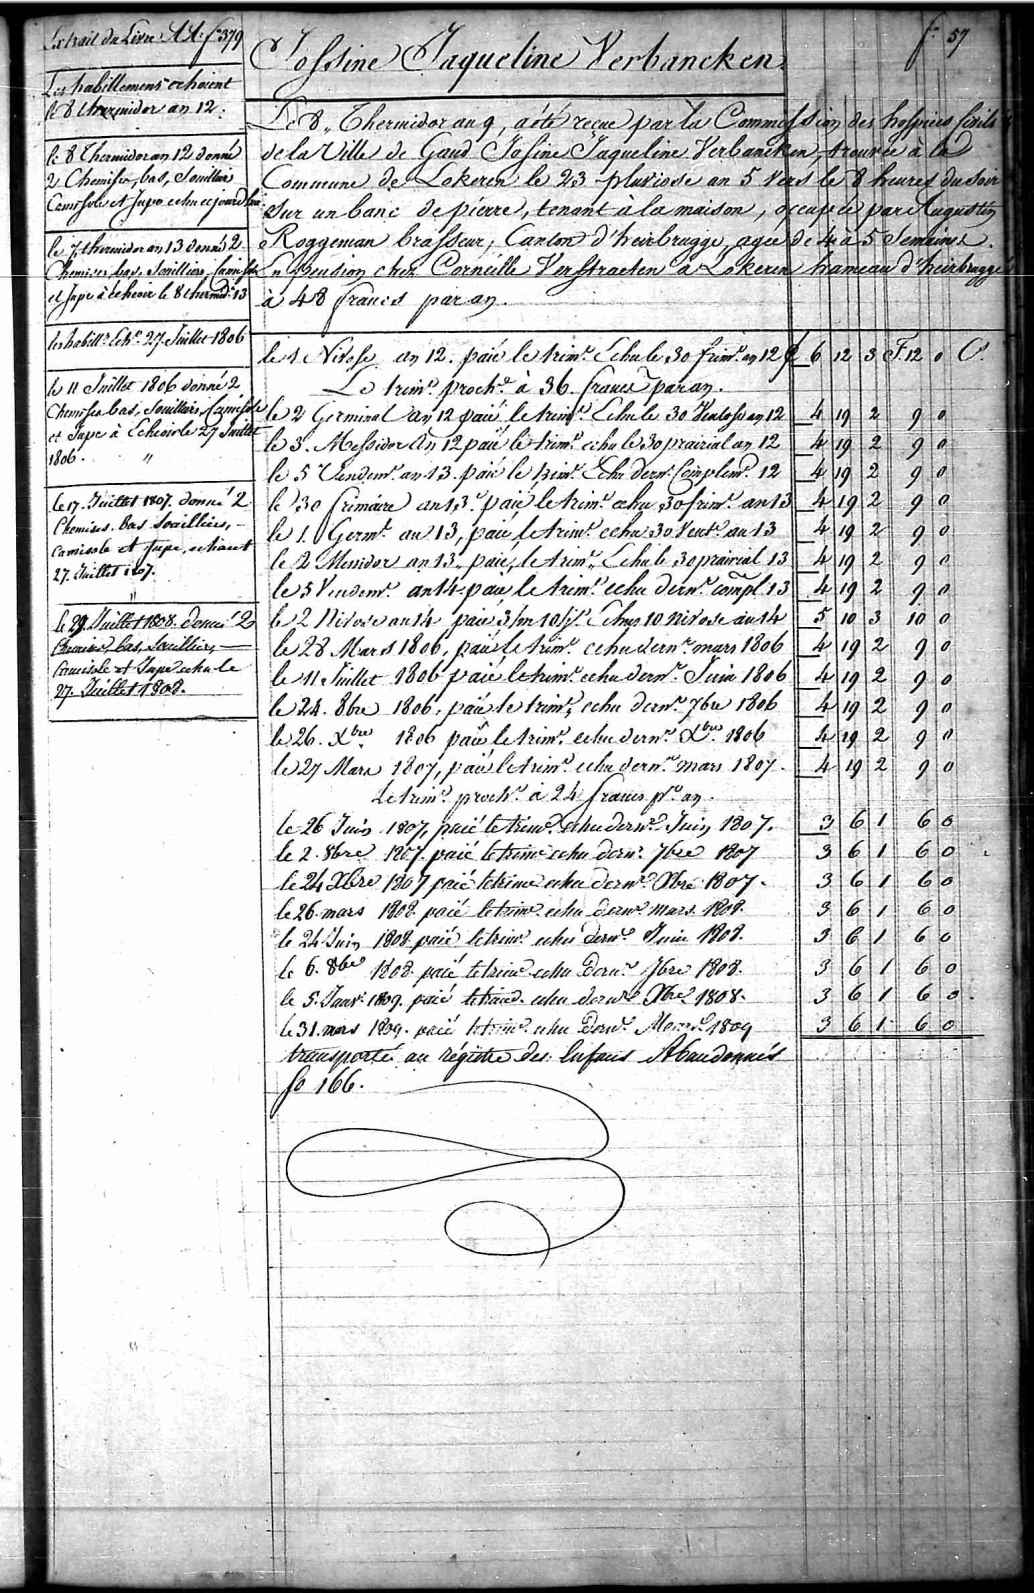 Extrait du Livre AA. f.º 379
f.º 57
Jossine Jaqueline Verbancken.
Les habillemens echoient
le 8 thermidor an 12.
le 8 Thermidor an 12 donné
2 Chemises, bas, Souillers
Camisole et Jupe echu ce jourd'hui
le 7 thermidor an 13 donné 2
Chemises, bas, Souilliers, Camisole
et Jupe à echeoir le 8 thermid. 13
les habill.s Ech.t 27 Juillet 1806
le 11 Juillet 1806 donné 2
Chemises bas, Souilliers, Camisole
et Jupe à Echeoir le 27 Juillet
1806. "
le 17. Juillet 1807. donné 2
Chemises. bas Souilliers, -
camisole et Jupe, echéant
27. Juillet 1807.
"
le 29. Juillet 1808. donné 2
Chemises, bas, Souilliers, —
Camisole et Jupe echu le
27. Juillet 1808.
Le 8,, Thermidor an 9, a été reçue par la Commission des hospices Civils
de la Ville de Gand Josine Jaqueline Verbancken, trouvée à la
Commune de Lokeren le 23 pluviose an 5 vers le 8 heures du soir
sur un banc de pierre, tenant à la maison, occupée par Augustin
Roggeman brasseur, Canton d'heirbrugge, agée de 4 à 5 Semaines.
En pension chez Corneille Verstraeten à Lokeren hameau d'heirbrugge
à 48 francs par an.
le 1 Nivose an 12. paié le trim.e Echu le 30 frim.e an 12 £ 6 12 3 F. 12 0 C.
Le trim.e proch.n à 36. francs par an.
le 2 Germinal an 12 paié, le trim.e Echu le 30 Ventose an 12 4 19 2 9 0
le 3. Messidor An 12 paié le trim.e echu le 30 prairial an 12 4 19 2 9 0
le 5 Vendem.e an 13. paié le trim.e Echu dern.r Complem.e 12 4 19 2 9 0
le 30 frimaire an 13. paié le trim.e echu 30 frim.e an 13 4 19 2 9 0
le 1. Germ.l an 13, paié, le trim.e echu 30 Vent.e an 13 4 19 2 9 0
le 2 Messidor an 13,, paié, le trim.e Echu le 30 prairial 13 4 19 2 9 0
le 5 Vendem.e an 14 paié le trim.e echu dern.r compl. 13 4 19 2 9 0
le 2 Nivose an 14 paié 3/m 10/j.s Echus 10 nivose an 14 5 10 3 10 0
le 28 Mars 1806, paié le trim.e echu dern.r mars 1806 4 19 2 9 0
le 11 Juillet 1806 paié le trim.e echu dern.r Juin 1806 4 19 2 9 0
le 24. 8bre 1806. paié le trim.e echu dern.r 7bre 1806 4 19 2 9 0
le 26. Xbre 1806 paié le trim.e echu dern.r Xbre 1806 4 19 2 9 0
le 27 Mars 1807, paié le trim.e echu dern.r mars 1807. 4 19 2 9 0
Le trim.e proch.n à 24 francs p.r an.
le 26 Juin 1807, paié le trim.e echu dern.r Juin 1807. 3 6 1 6 0
le 2. 8bre 1807. paié le trim.e echu dern.r 7bre 1807 3 6 1 6 0
le 24 Xbre 1807 paié le trim.e echu dern.r Xbre 1807. 3 6 1 6 0
le 26. mars 1808. paié le trim.e echu dern.r mars. 1808. 3 6 1 6 0
le 24 Juin 1808. paié le trim.e echu dern.r Juin 1808. 3 6 1 6 0
le 6. 8bre 1808. paié le trim.e echu Dern.r 7bre 1808. 3 6 1 6 0
le 5. Janv.r 1809. paié le trim.e echu dern.r Xbre 1808. 3 6 1 6 0
le 31. mars 1809. paié le trim.e echu Dern.r Mars 1809 3 6 1 6 0
transporté au régistre des Enfans Abandonnés
fo 166.